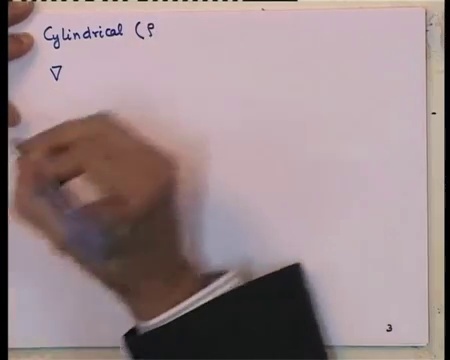 Cylindrical (ρ
∇
3